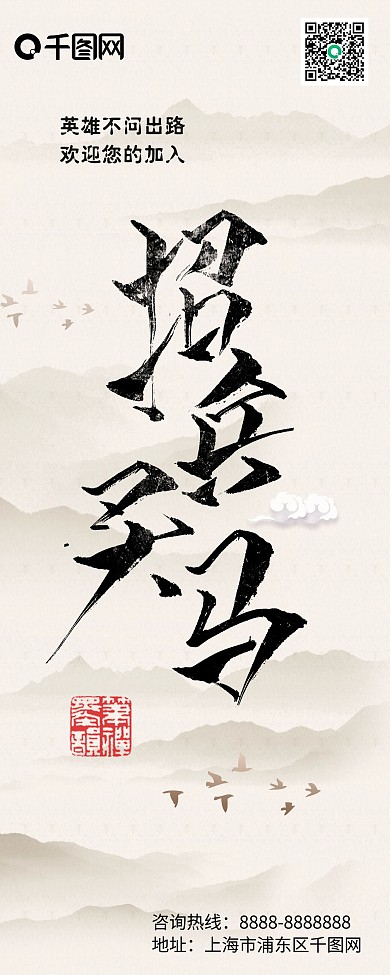 千图网
英雄不问出路
欢迎您的加入
招兵买马
咨询热线：8888-8888888
地址：上海市浦东区千图网